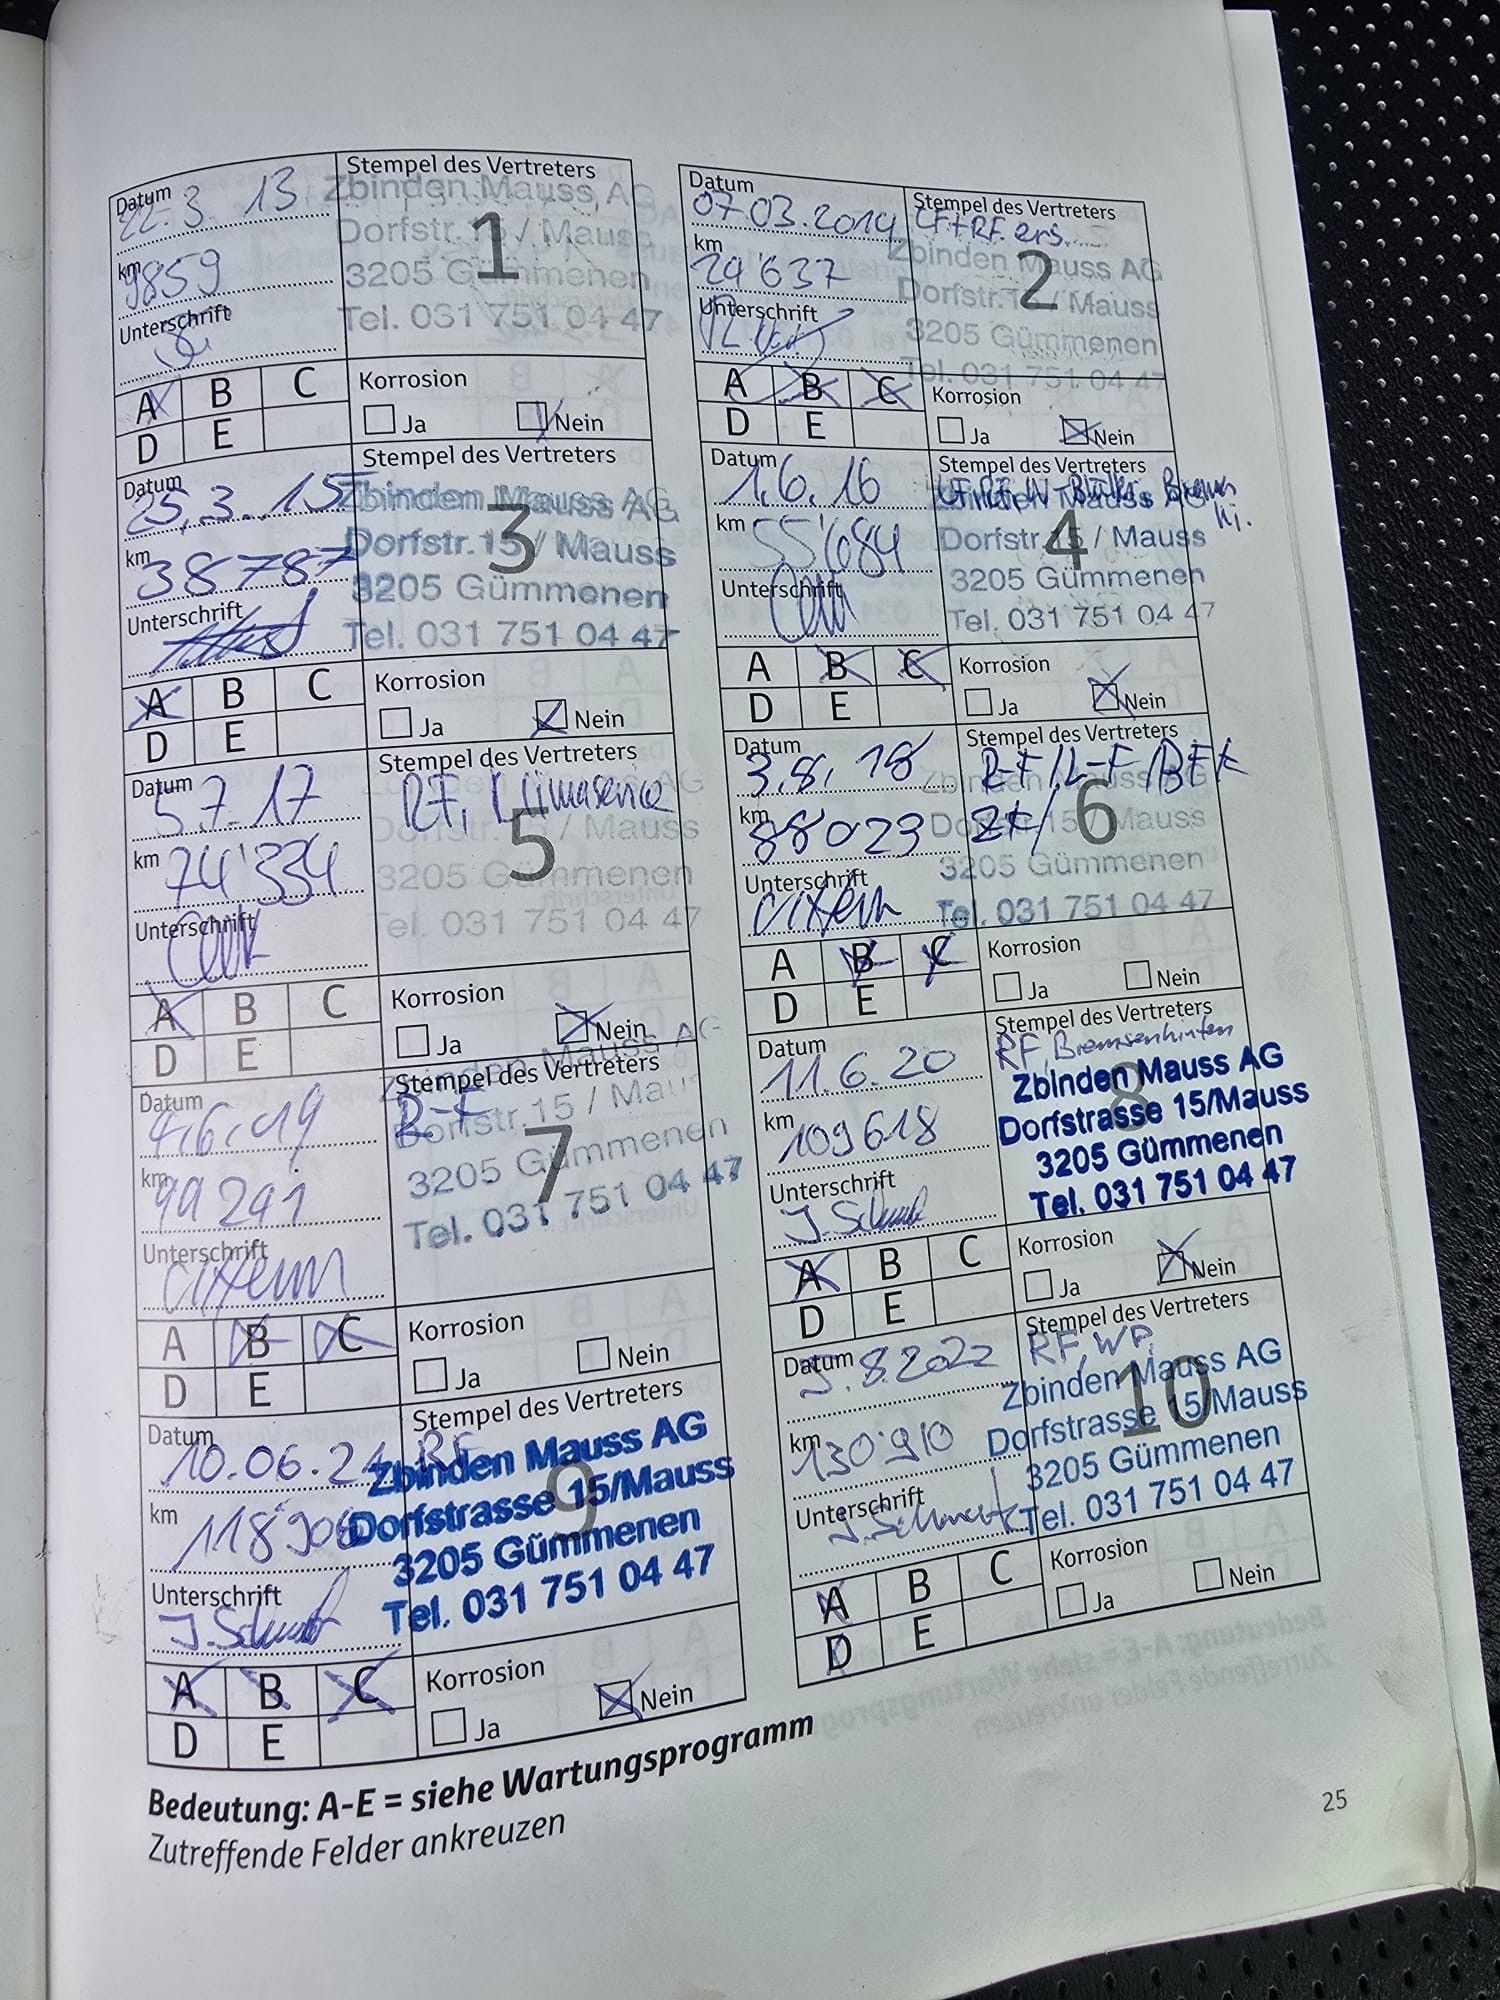 Datum
22.3.13
km
9859
Unterschrift
Stempel des Vertreters
Zbinden Mauss AG
Dorfstr. 15 / Mauss
3205 Gümmenen
Tel. 031 751 04 47
1
A B C
D E
Korrosion
Ja Nein
Datum
07.03.2014
km
24'637
Unterschrift
Stempel des Vertreters
LF+RF. ers.
Zbinden Mauss AG
Dorfstr. 15 / Mauss
3205 Gümmenen
Tel. 031 751 04 47
2
A B C
D E
Korrosion
Ja Nein
Datum
25.3.15
km
38787
Unterschrift
Stempel des Vertreters
Zbinden Mauss AG
Dorfstr. 15 / Mauss
3205 Gümmenen
Tel. 031 751 04 47
3
A B C
D E
Korrosion
Ja Nein
Datum
1.6.16
km
55'684
Unterschrift
Stempel des Vertreters
Zbinden Mauss AG
hi.
Dorfstr. 15 / Mauss
3205 Gümmenen
Tel. 031 751 04 47
4
A B C
D E
Korrosion
Ja Nein
Datum
5.7.17
km
74'334
Unterschrift
Stempel des Vertreters
RF,
Dorfstr. 15 / Mauss
3205 Gümmenen
Tel. 031 751 04 47
5
A B C
D E
Korrosion
Ja Nein
Datum
3.8.18
km
88023
Unterschrift
Stempel des Vertreters
RF/L-F/BFK
Zbinden Mauss AG
Dorfstr. 15 / Mauss
3205 Gümmenen
Tel. 031 751 04 47
6
A B C
D E
Korrosion
Ja Nein
Datum
4.6.19
km
99291
Unterschrift
Zbinden Mauss AG
Stempel des Vertreters
R-F
Dorfstr. 15 / Mauss
3205 Gümmenen
Tel. 031 751 04 47
7
A B C
D E
Korrosion
Ja Nein
Datum
11.6.20
km
109618
Unterschrift
Stempel des Vertreters
RF, Bremsenhinten
Zbinden Mauss AG
Dorfstrasse 15/Mauss
3205 Gümmenen
Tel. 031 751 04 47
8
A B C
D E
Korrosion
Ja Nein
Datum
10.06.21
km
118'906
Unterschrift
Stempel des Vertreters
RF
Zbinden Mauss AG
Dorfstrasse 15/Mauss
3205 Gümmenen
Tel. 031 751 04 47
9
A B C
D E
Korrosion
Ja Nein
Datum
5.8.2022
km
130'910
Unterschrift
Stempel des Vertreters
RF, WP,
Zbinden Mauss AG
Dorfstrasse 15/Mauss
3205 Gümmenen
Tel. 031 751 04 47
10
A B C
D E
Korrosion
Ja Nein
Bedeutung: A-E = siehe Wartungsprogramm
Zutreffende Felder ankreuzen
25